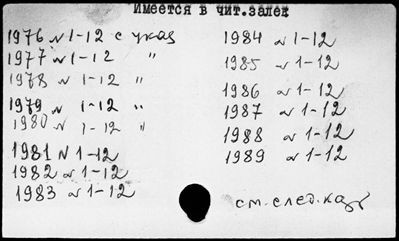 Имеется в чит.залек
1976 № 1-12 с указ
1977 № 1-12 "
1978 № 1-12 "
1979 № 1-12 "
1980 № 1-12 "
1981 № 1-12
1982 № 1-12
1983 № 1-12
1984 № 1-12
1985 № 1-12
1986 № 1-12
1987 № 1-12
1988 № 1-12
1989 № 1-12
см. след.